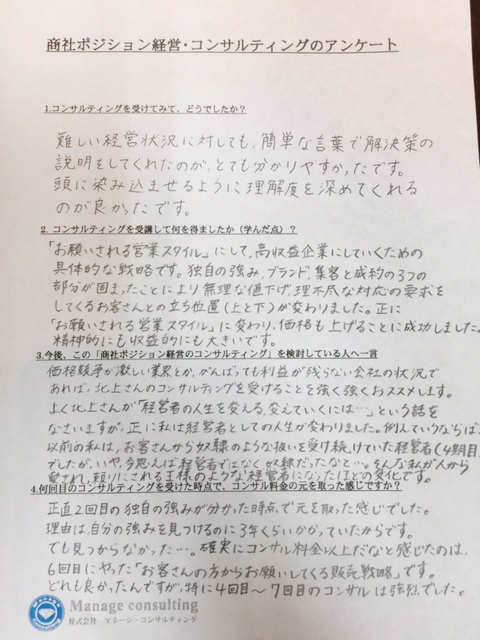 商社ポジション経営・コンサルティングのアンケート
1.コンサルティングを受けてみて、どうでしたか？
難しい経営状況に対しても、簡単な言葉で解決策の
説明をしてくれたのが、とても分かりやすかったです。
頭に染み込ませるように理解度を深めてくれる
のが良かったです。
2. コンサルティングを受講して何を得ましたか（学んだ点）？
「お願いされる営業スタイル」にして、高収益企業にしていくための
具体的な戦略です。独自の強み、ブランド、集客と成約の3つの
部分が固まったことにより無理な値下げ、理不尽な対応の要求を
してくるお客さんとの立ち位置(上と下)が変わりました。正に
「お願いされる営業スタイル」に変わり、価格も上げることに成功しました。
精神的にも収益的にも大きいです。
3.今後、この「商社ポジション経営のコンサルティング」を検討している人へ一言
価格競争が激しい業界とか、がんばっても利益が残らない会社の状況で
あれば、北上さんのコンサルティングを受けることを強く強くおススメします。
よく北上さんが「経営者の人生を変える、変えていくには…」という話を
なさいますが、正に私は経営者としての人生が変わりました。例えていうならば、
以前の私は、お客さんから奴隷のような扱いを受け続けていた経営者(4期目)
でしたが、いや、今思えば経営者ではなく奴隷だったなと…。そんな私が人から
愛され、頼りにされる王様のような経営者になったほどの変化です。
4.何回目のコンサルティングを受けた時点で、コンサル料金の元を取った感じですか？
正直2回目の独自の強みが分かった時点で元を取った感じでした。
理由は、自分の強みを見つけるのに3年くらいかかっていたからです。
でも見つからなかった…。確実にコンサル料金以上だなと感じたのは、
6回目にやった「お客さんの方からお願いしてくる販売戦略」です。
どれも良かったんですが、特に4回目〜7回目のコンサルは強烈でした。
Manage consulting
株式会社 マネージ・コンサルティング